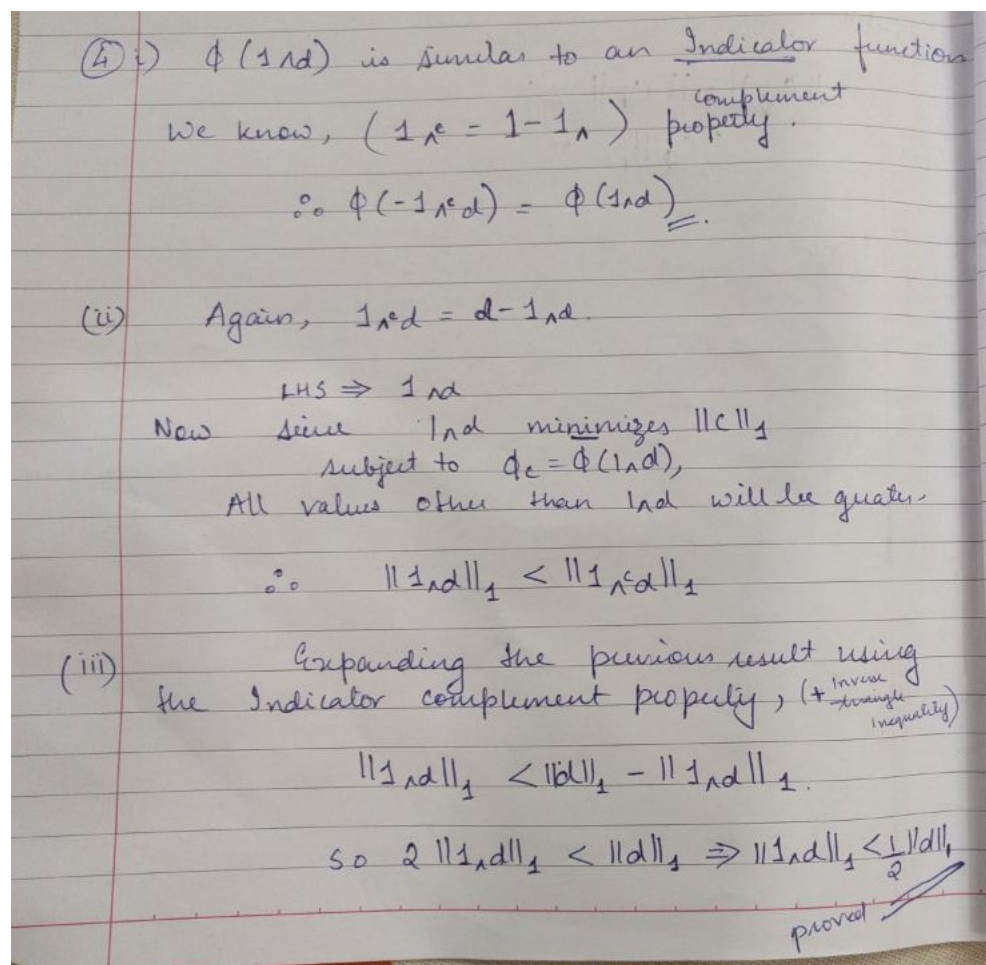 ④ i) ϕ(1Λd) is similar to an Indicator function
We know, (1Λᶜ = 1 - 1Λ) complement property.
∴ ϕ(-1Λᶜd) = ϕ(1Λd).
(ii) Again, 1Λᶜd = d - 1Λd.
LHS ⇒ 1Λd
Now since 1Λd minimizes ||c||₁
subject to ϕc = ϕ(1Λd),
All values other than 1Λd will be greater.
∴ ||1Λd||₁ < ||1Λᶜd||₁
(iii) Expanding the previous result using
the Indicator complement property, (+ inverse triangle inequality)
||1Λd||₁ < ||d||₁ - ||1Λd||₁.
so 2 ||1Λd||₁ < ||d||₁ ⇒ ||1Λd||₁ < 1/2 ||d||₁
proved